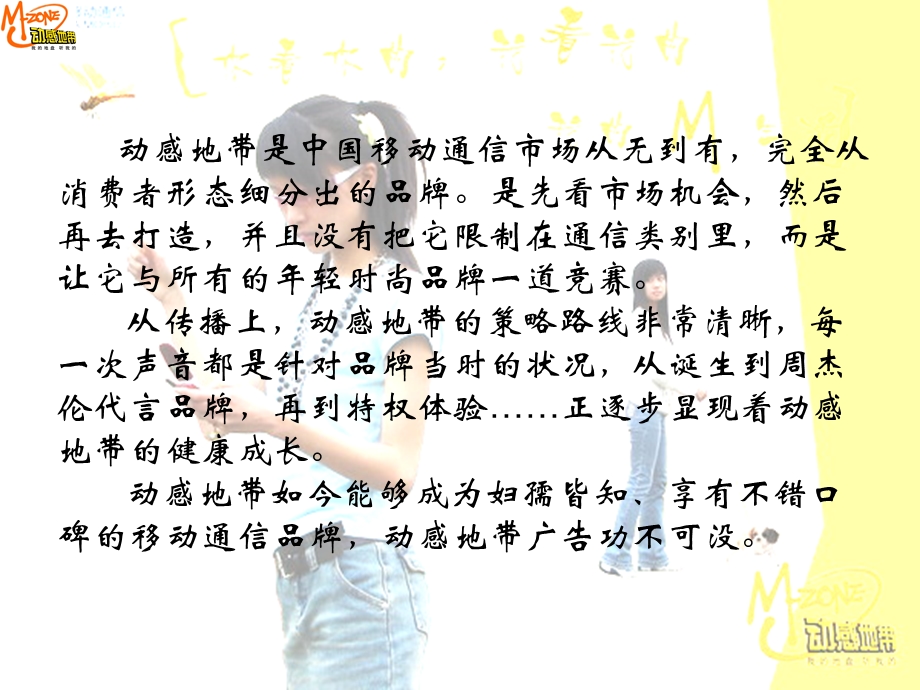 M-ZONE
动感地带
我的地盘 听我的
动感地带是中国移动通信市场从无到有，完全从
消费者形态细分出的品牌。是先看市场机会，然后
再去打造，并且没有把它限制在通信类别里，而是
让它与所有的年轻时尚品牌一道竞赛。
从传播上，动感地带的策略路线非常清晰，每
一次声音都是针对品牌当时的状况，从诞生到周杰
伦代言品牌，再到特权体验……正逐步显现着动感
地带的健康成长。
动感地带如今能够成为妇孺皆知、享有不错口
碑的移动通信品牌，动感地带广告功不可没。
M-ZONE
动感地带
我的地盘 听我的